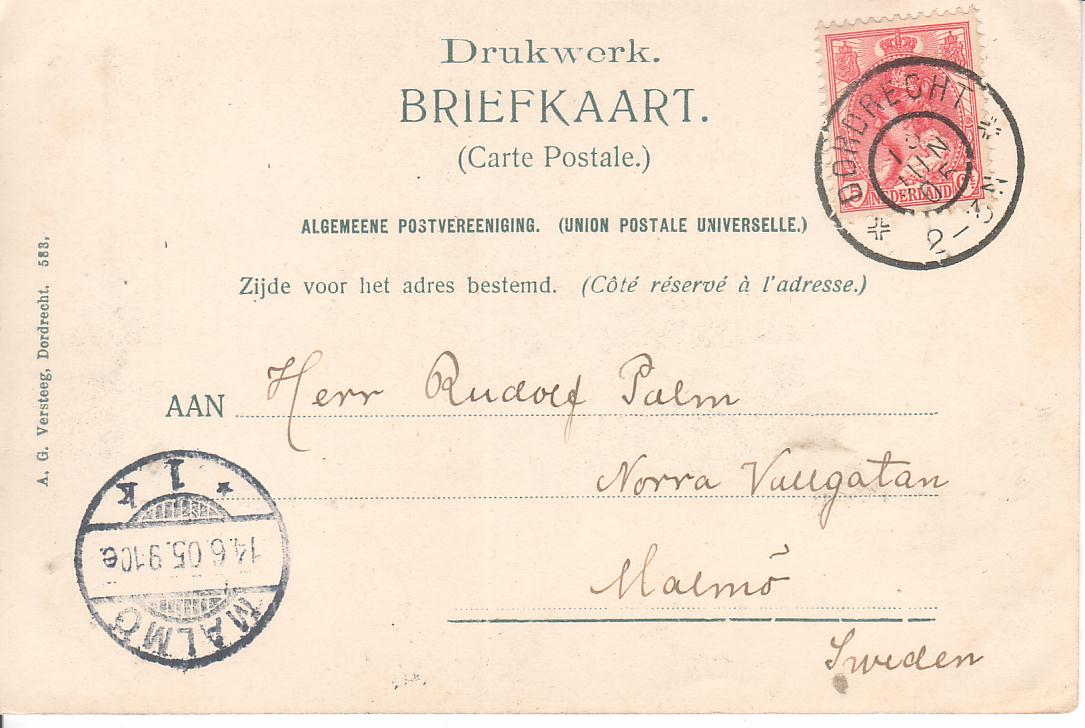 Drukwerk.
BRIEFKAART.
(Carte Postale.)
ALGEMEENE POSTVEREENIGING. (UNION POSTALE UNIVERSELLE.)
Zijde voor het adres bestemd. (Côté réservé à l'adresse.)
A. G. Versteeg, Dordrecht. 583.
DORDRECHT
JUN
2-3N
5 NEDERLAND
AAN Herr Rudolf Palm
Norra Vallgatan
Malmö
Sweden
1 K
14.6.05.9 10 e.
MALMÖ